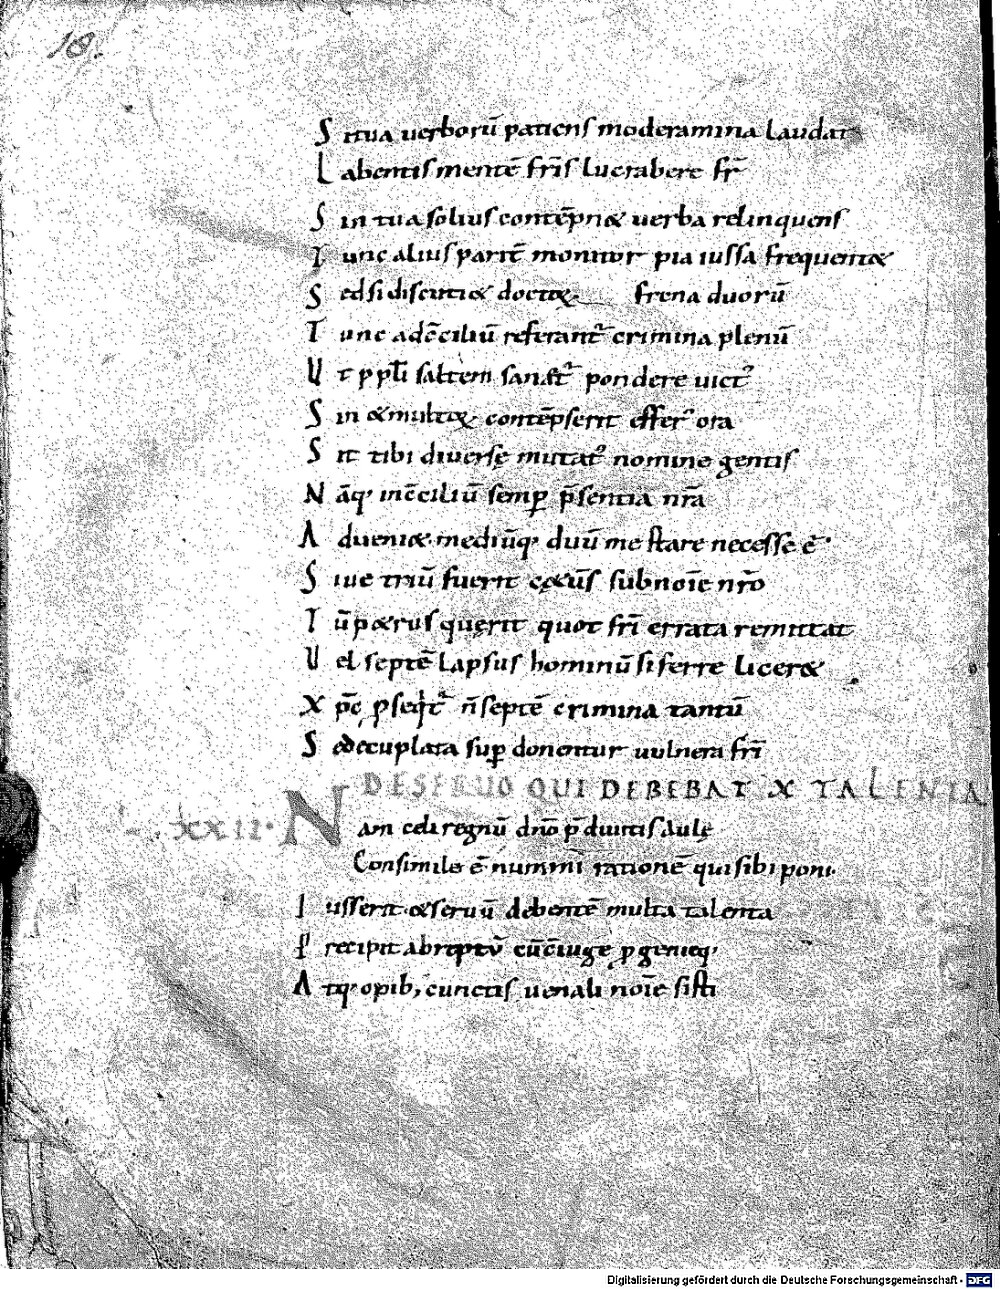 18.
S i tua uerborū patiens moderamina laudat
L abentis mentē fr̄is lucrabere fr̄
S in tua solius contēpn& uerba relinquens
T unc alius parit̄ monitor pia iussa frequent&
S ed si discuti& doct& frena duorū
T unc ad c̄ciliū referant᷑ crimina plenū
U t ppl̄i saltem sanct᷑ pondere uict᷑
S in & mult& contēpserit effer᷑ ora
S it tibi diuersę mutat᷑ nomine gentis
N āq; in c̄ciliū semp̄ p̄sentia nr̄a
A dueni& mediūq; duū me stare necesse ē
S iue triū fuerit cę&us̄ sub noīe nr̄o
T ū p&rus quęrit quot fr̄i errata remittat
U el septē lapsus hominū si ferre licer&
X p̄c pseqt᷑ n̄ septē crimina tantū
S ed decuplata sup̄ donentur uulnera fr̄i
DE SERUO QUI DEBEBAT X TALENTA
XXII. N am celi regnū dn̄o p̄diuitis aulę
Consimile ē nummī rationē qui sibi poni
I usserit & seruū debentē multa talenta
P recipit abreptū cū c̄iuge p genieq;
A tq; opib; cunctis uenali noīe sisti
Digitalisierung gefördert durch die Deutsche Forschungsgemeinschaft - DFG